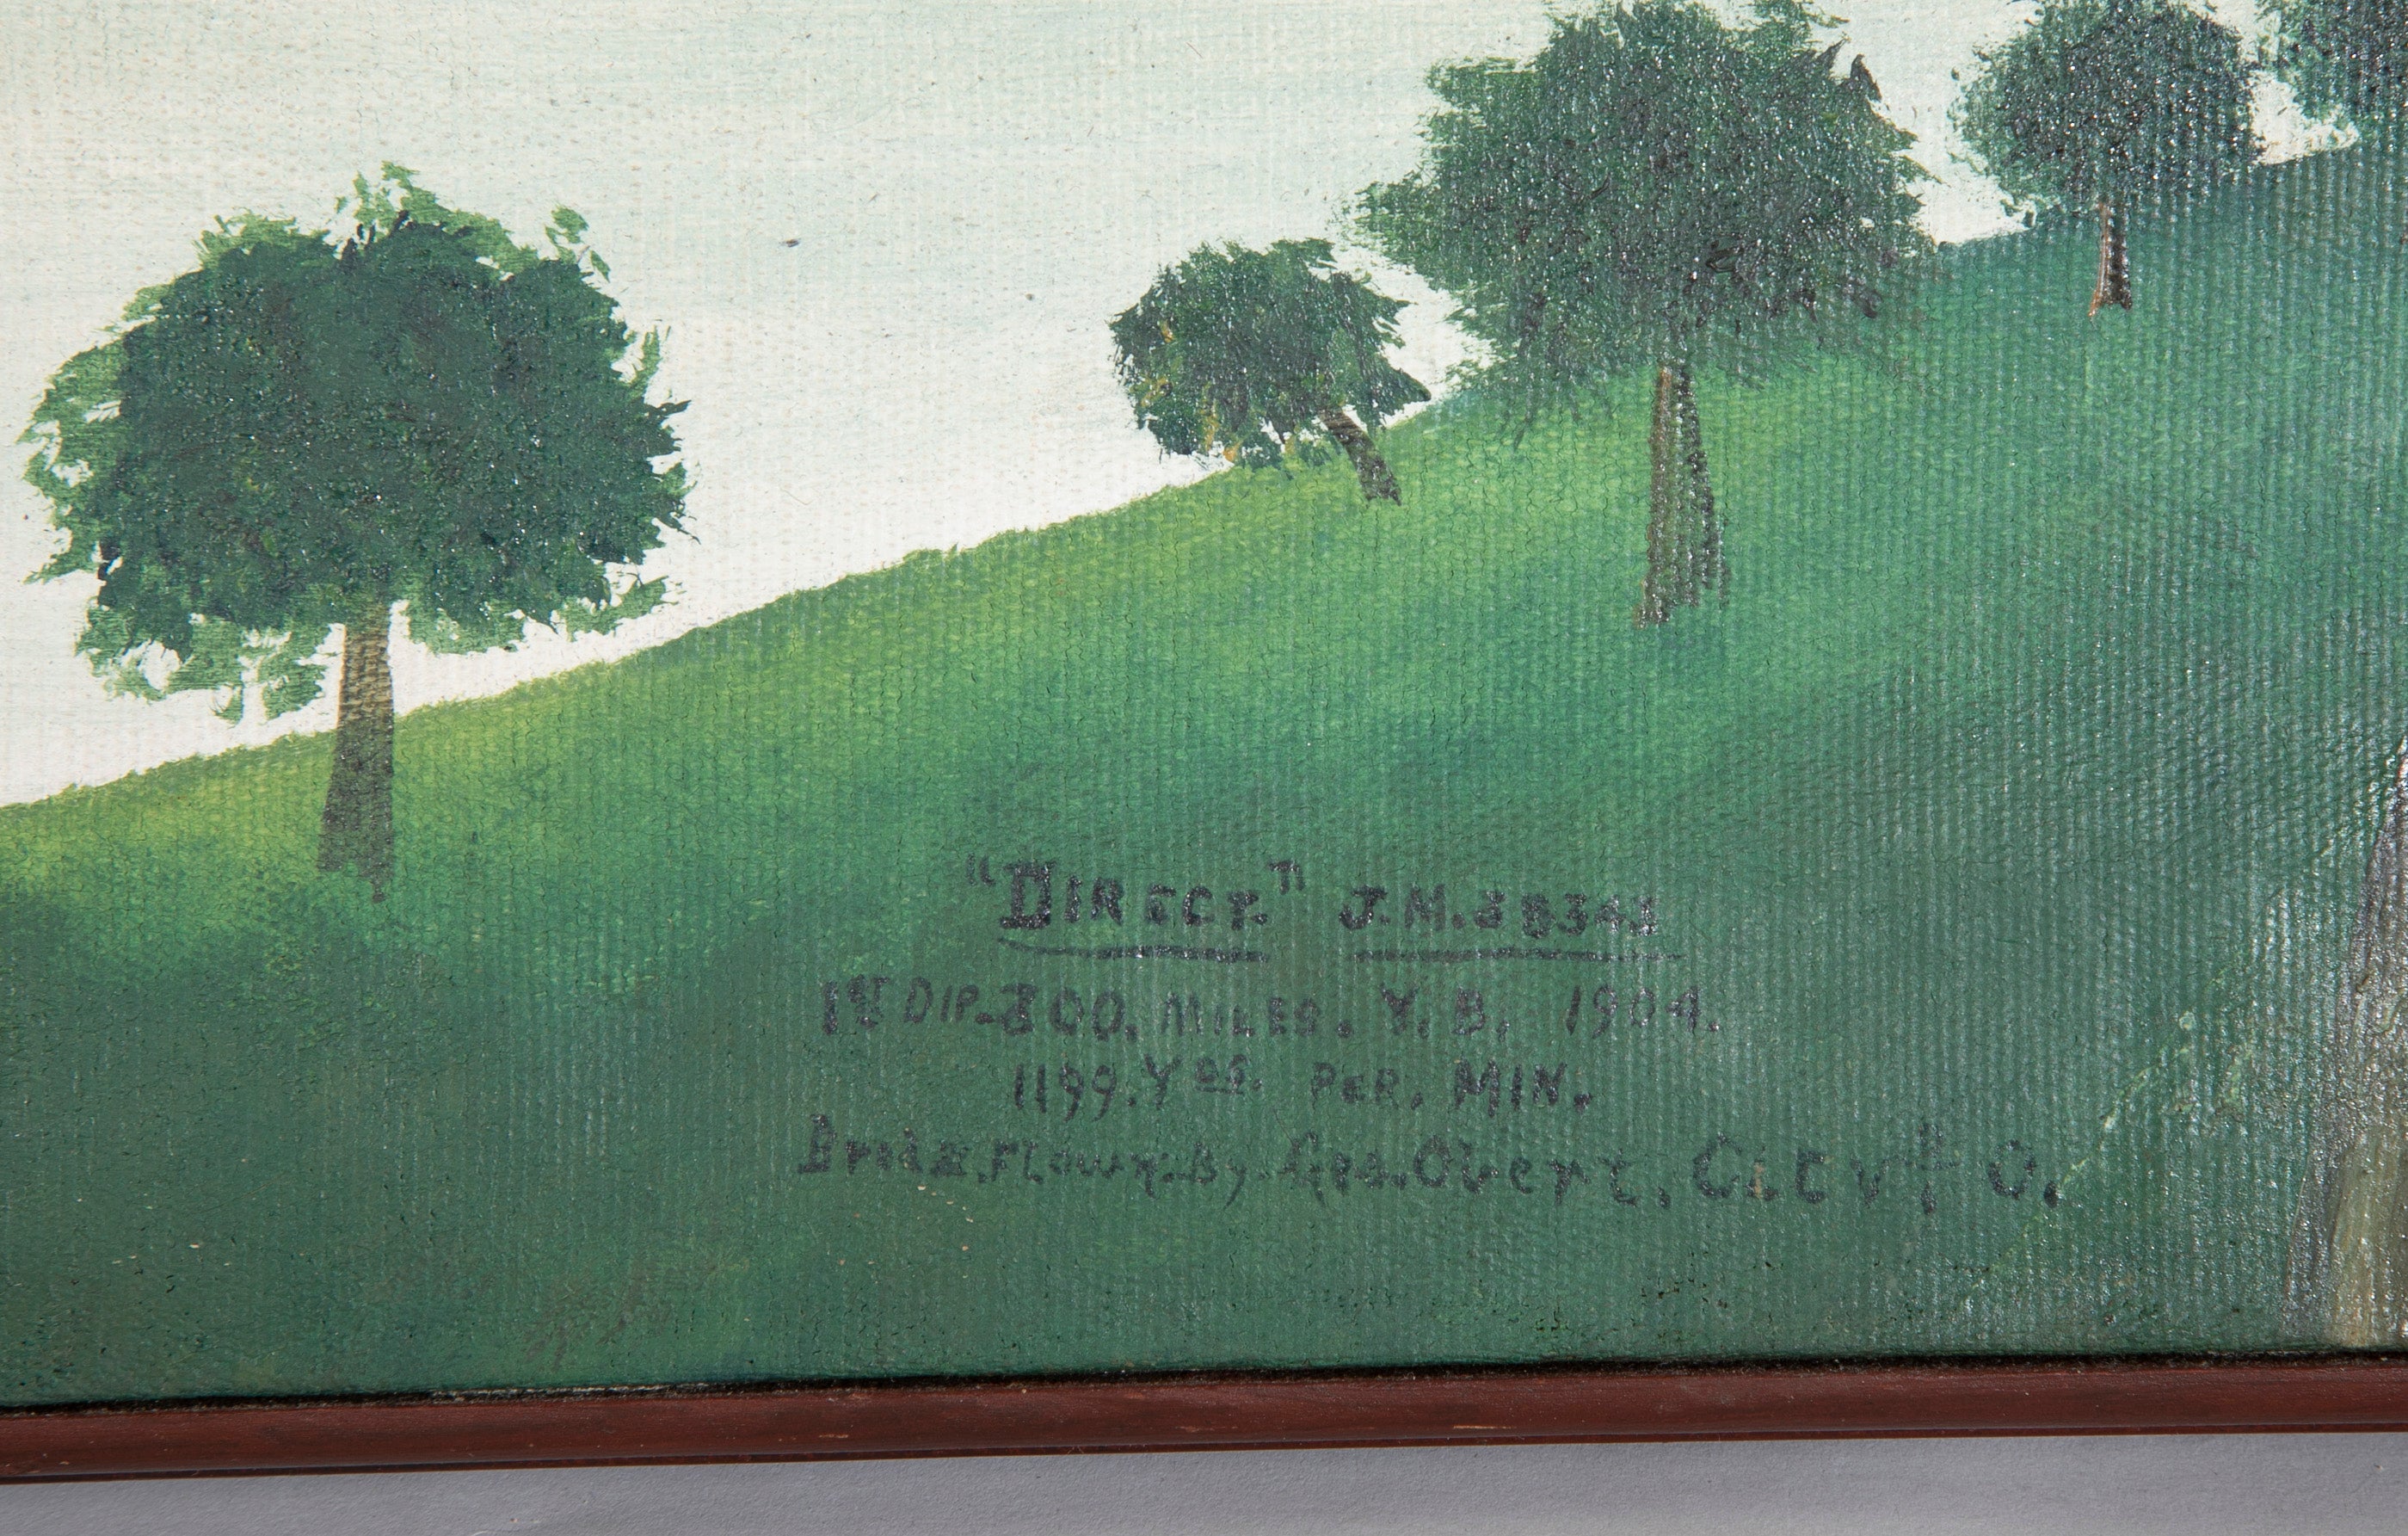 "DIRECT." J.M.38343
1ST DIP. 300. MILES. Y. B. 1904.
1199. YDS. PER. MIN.
Bred &. Flown. By. Geo. Obert. O.